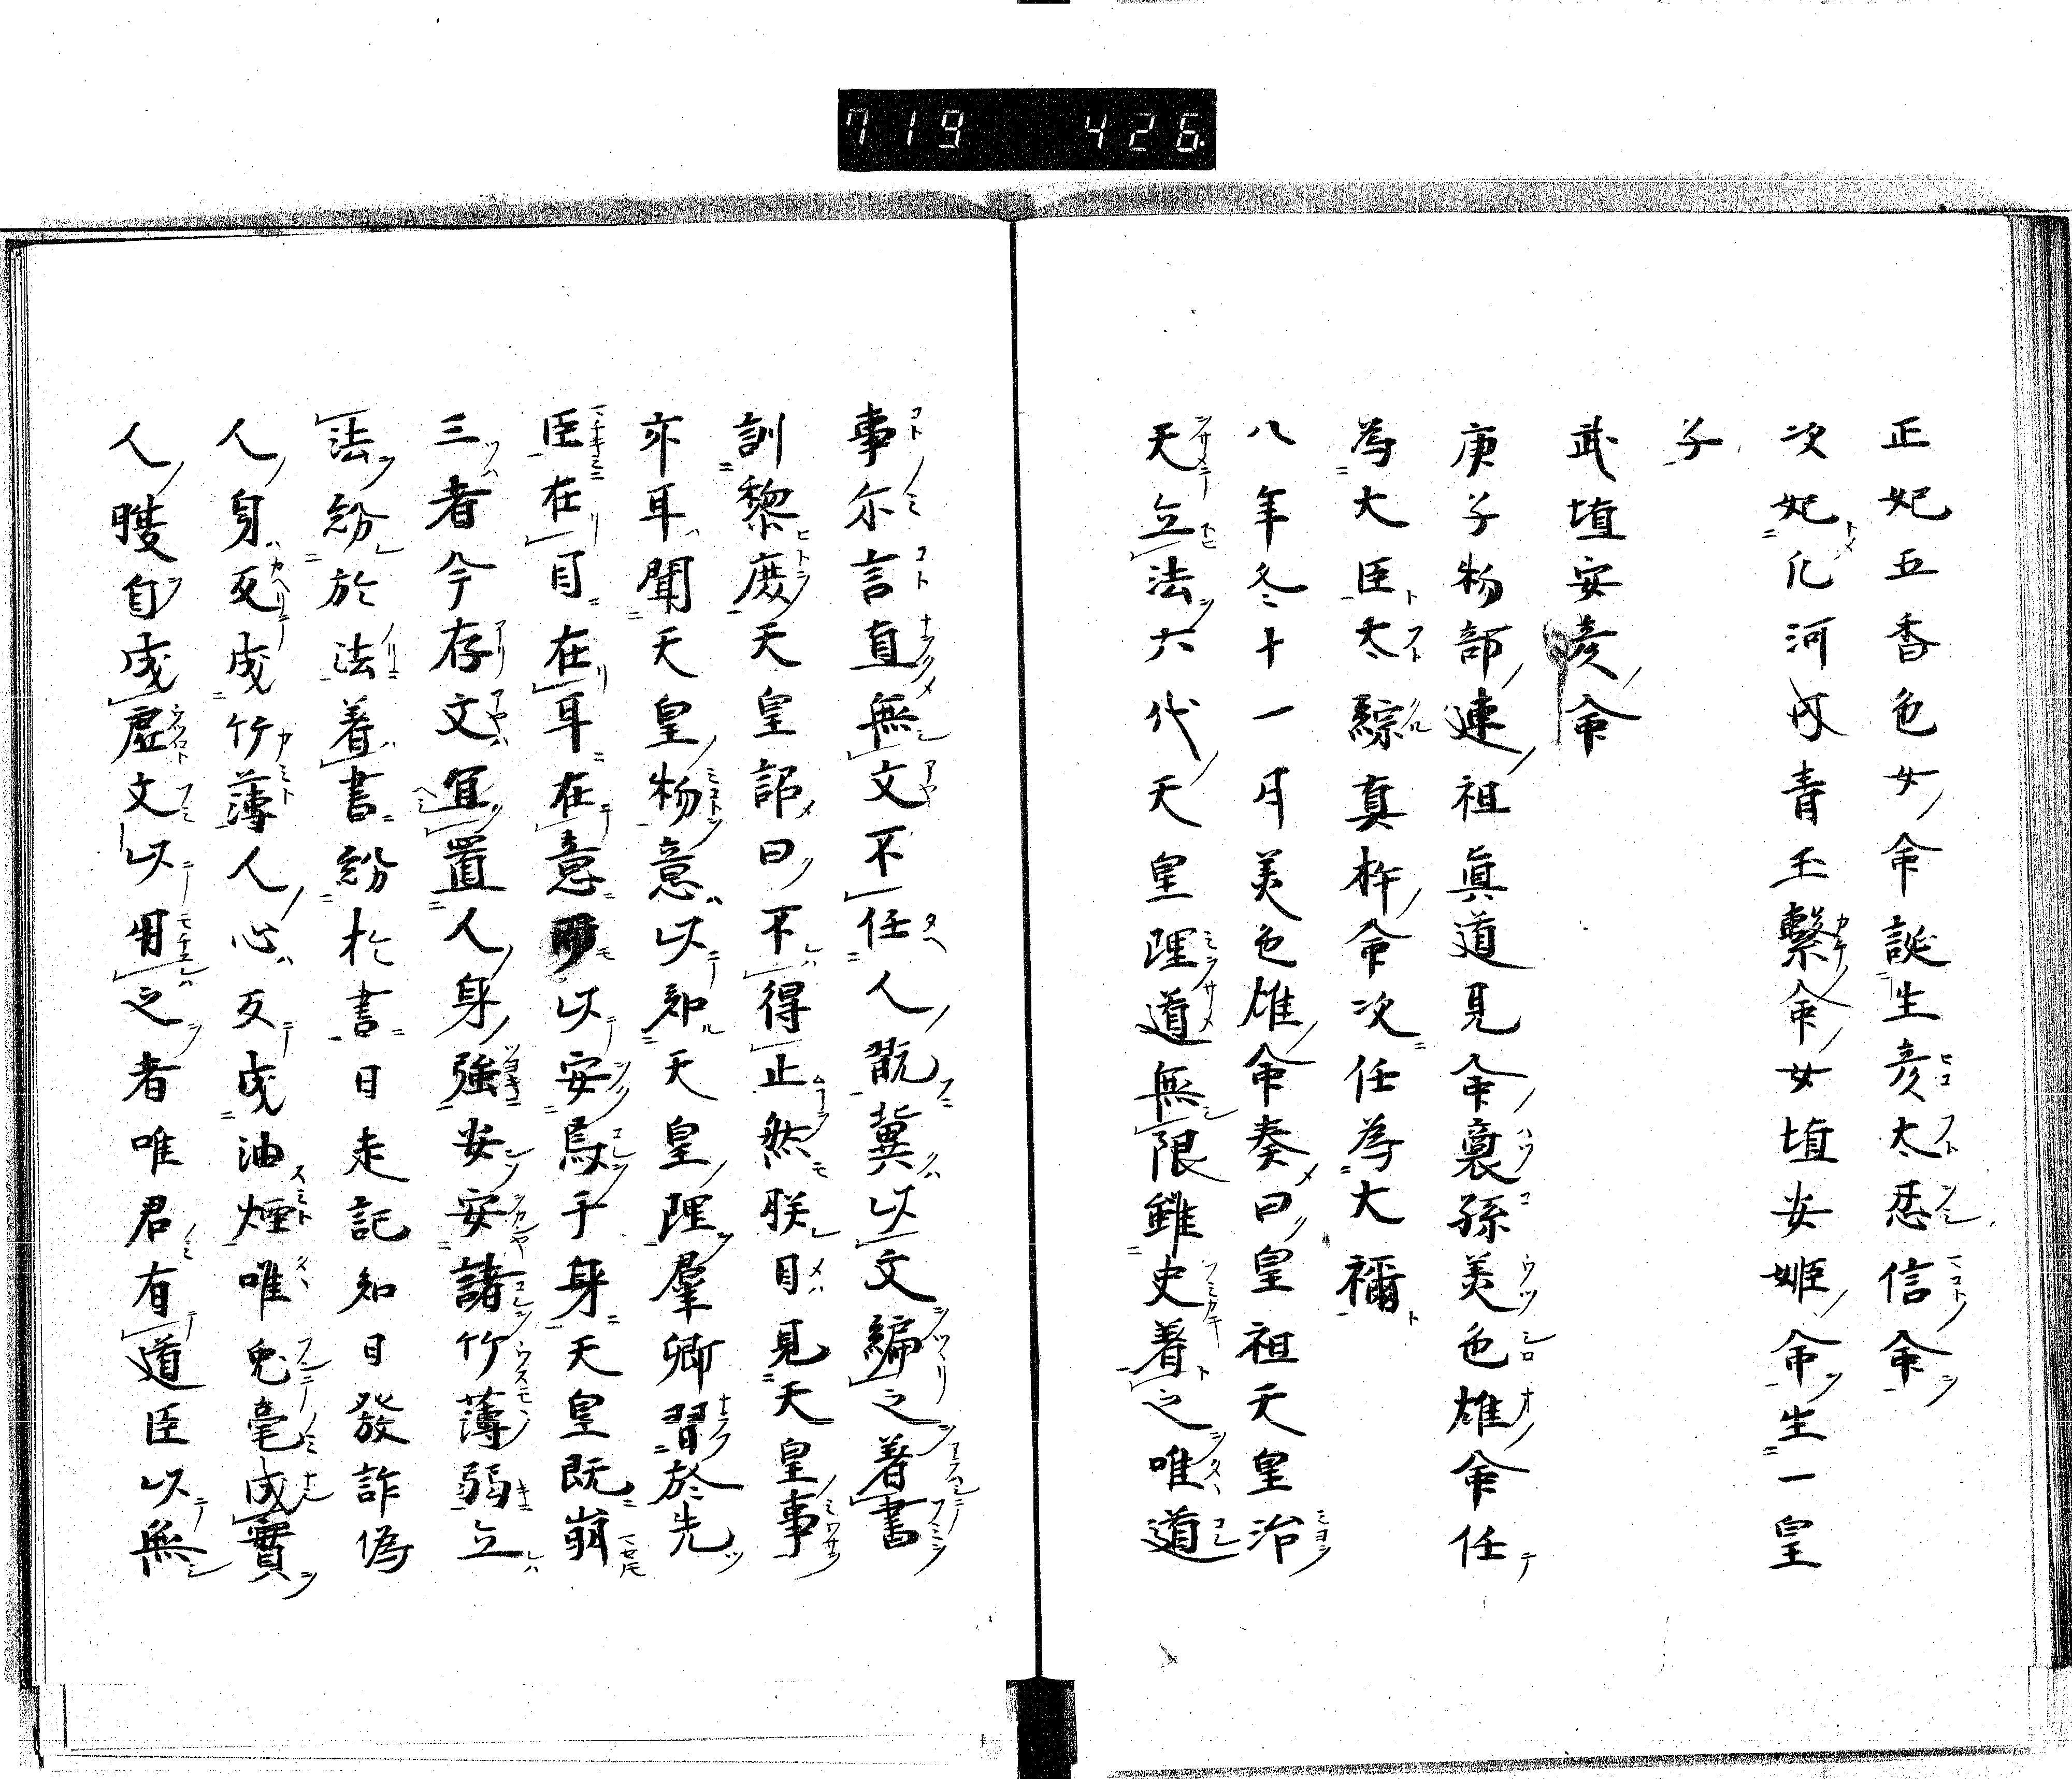 719 426
正妃五香色女命誕生彦太忍信命
次妃化河内青玉繋命女埴安姫命生一皇
子
武埴安彦命
庚子物部連祖眞道見命裏孫美色雄命任
為大臣太綜真杵命次任為大禰
八年冬十一月美色雄命奏曰皇祖天皇治
天立法六代天皇理道無限雖史着之唯道
事尓言直無文不任人翫冀以文編之着書
訓黎庶天皇詔曰不得止然朕目見天皇事
亦耳聞天皇物意以知天皇理羣卿習於先
臣在目在耳在意所以安焉于身天皇既崩
三者今存文宜置人身強安安諸竹薄弱立
法紛於法着書紛於書日走記知日發詐偽
人身反成竹薄人心反成油煙唯兎毫成實
人自成虚文以用之者唯君有道臣以無